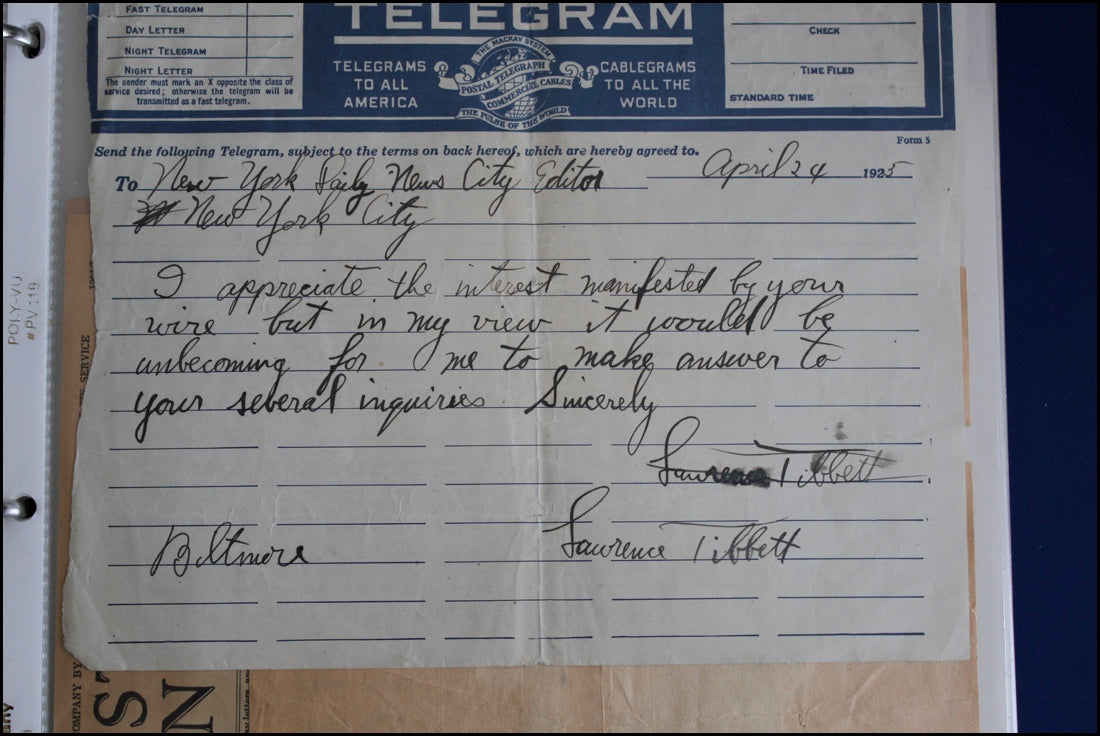 FAST TELEGRAM
DAY LETTER
NIGHT TELEGRAM
NIGHT LETTER
The sender must mark an X opposite the class of
service desired; otherwise the telegram will be
transmitted as a fast telegram.
TELEGRAM
TELEGRAMS
TO ALL
AMERICA
THE MACKAY SYSTEM
POSTAL TELEGRAPH
COMMERCIAL CABLES
THE PULSE OF THE WORLD
CABLEGRAMS
TO ALL THE
WORLD
CHECK
TIME FILED
STANDARD TIME
Form 5
Send the following Telegram, subject to the terms on back hereof, which are hereby agreed to.
To New York Daily News City Editor April 24 1925
New York City
I appreciate the interest manifested by your
wire but in my view it would be
unbecoming for me to make answer to
your several inquiries. Sincerely
Lawrence Tibbett
Biltmore Lawrence Tibbett
POLY-VU
#PV119
SERVICE
COMPANY BY
ST
N